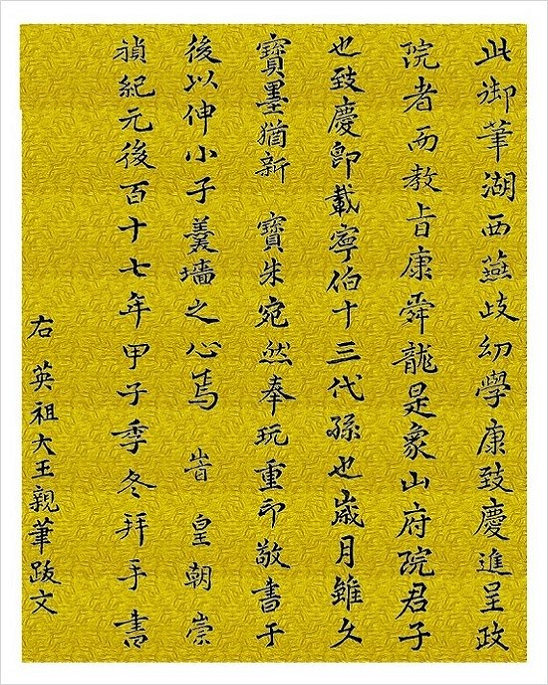 此御筆湖西燕歧幼學康致慶進呈政
院者而教旨康舜龍是象山府院君子
也致慶卽載寧伯十三代孫也歲月雖久
寶墨猶新 寶朱宛然奉玩重印敬書于
後以伸小子羹墻之心焉 旹 皇朝崇
禎紀元後百十七年甲子季冬拜手書
右 英祖大王親筆跋文